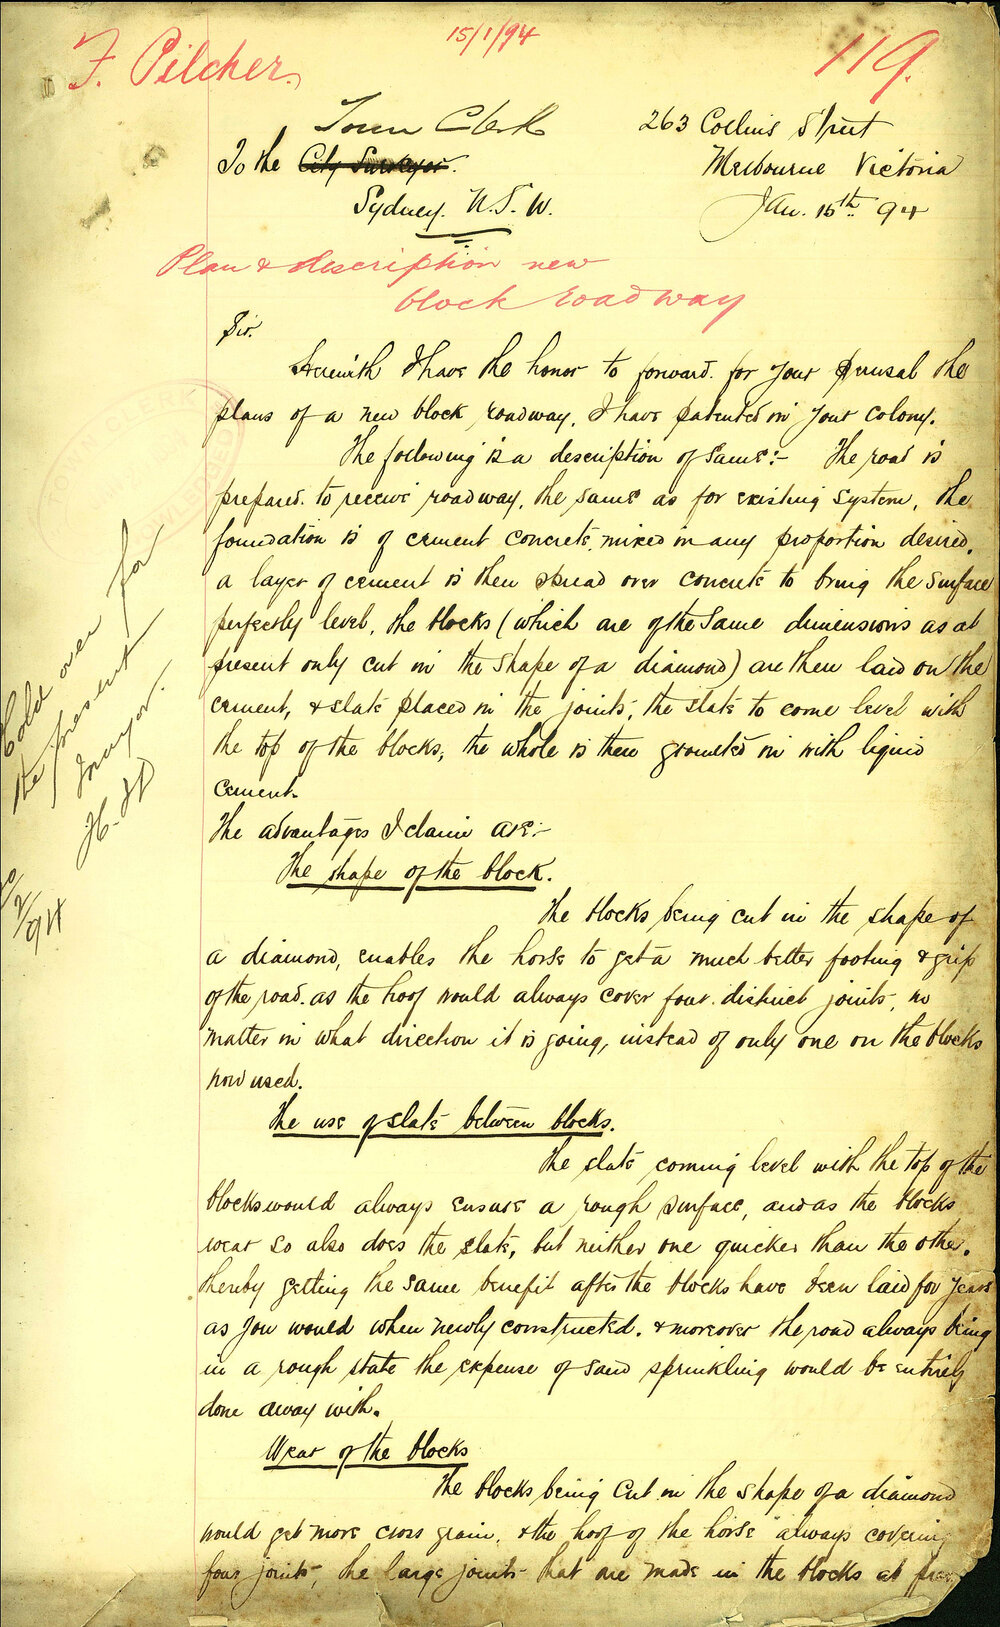 15/1/94
F. Pilcher.
119.
Town Clerk
To the City Surveyor.
Sydney. N.S.W.
263 Collins Street
Melbourne Victoria
Jan. 15th 94
Plan & description new
block roadway
Sir.
Herewith I have the honor to forward for your perusal the
plans of a new block roadway, I have patented in your colony.
The following is a description of same:- The road is
prepared to receive roadway, the same as for existing system, the
foundation is of cement concrete, mixed in any proportion desired,
a layer of cement is then spread over concrete to bring the surface
perfectly level, the blocks (which are of the same dimensions as at
present only cut in the shape of a diamond) are then laid on the
cement, & slate placed in the joints, the slate to come level with
the top of the blocks, the whole is then grouted in with liquid
cement.
The advantages I claim are:-
The shape of the block.
The blocks being cut in the shape of
a diamond, enables the horse to get a much better footing & grip
of the road. as the hoof would always cover four distinct joints, no
matter in what direction it is going, instead of only one on the blocks
now used.
The use of slate between blocks.
The slate coming level with the top of the
blocks would always ensure a rough surface, and as the blocks
wear so also does the slate, but neither one quicker than the other.
thereby getting the same benefit after the blocks have been laid for years
as you would when newly constructed. & moreover the road always being
in a rough state the expense of sand sprinkling would be entirely
done away with.
Wear of the blocks
The blocks being cut in the shape of a diamond
would get more cross grain, & the hoof of the horse always covering
four joints, the large joints that are made in the blocks at
Hold over for
the present
Mayor.
20/2/94